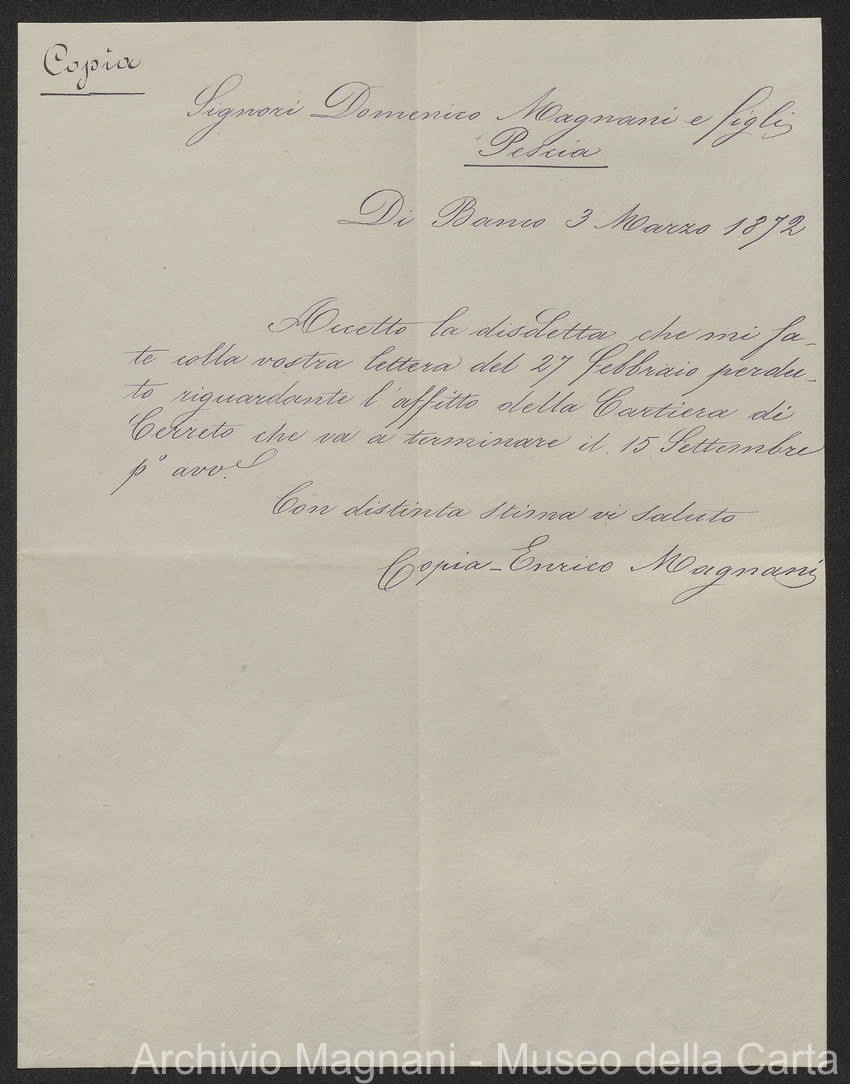 Copia
Signori Domenico Magnani e figli
Pescia
Di Banco 3 Marzo 1872
Accetto la disdetta che mi fa-
te colla vostra lettera del 27 febbraio perdu-
to riguardante l'affitto della Cartiera di
Cerreto che va a terminare il 15 Settembre
p.º avv.
Con distinta stima vi saluto
Copia - Enrico Magnani
Archivio Magnani - Museo della Carta